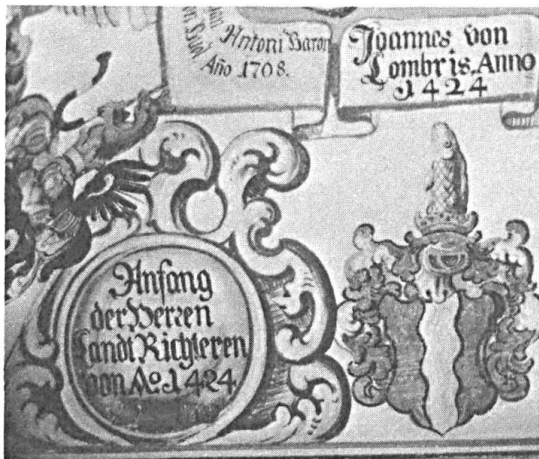 Antoni Baron
Año 1708.
Joannes von
Lombris. Anno
1424
Anfang
der Herren
Landt Richteren
von Aº. 1424